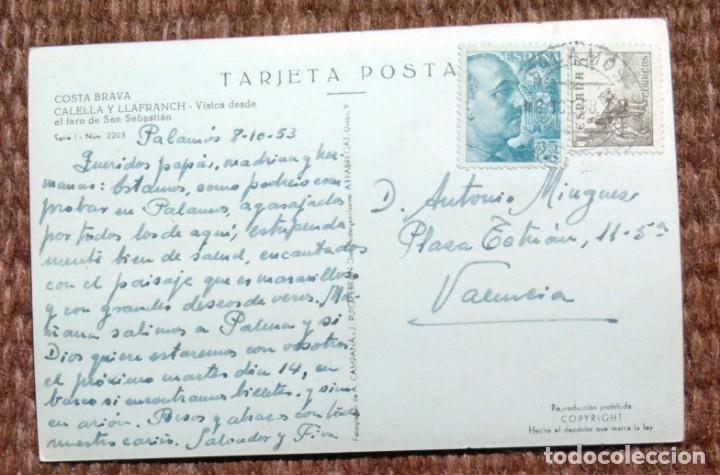 TARJETA POSTA
COSTA BRAVA
CALELLA Y LLAFRANCH - Vistos desde
el faro de San Sebastián
Serie I - Núm. 2203
Palamós 8-10-53
Queridos papás, madrina y her
manas: Estamos, como podreis com
probar en Palamos, agasajados
por todos los de aquí, estupenda
mente bien de salud, encantados
con el paisaje que es maravilloso
y con grandes deseos de veros. Ma
ñana salimos a Palma y si
Dios quiere estaremos con vosotros
en el próximo martes día 14, en
barco si encontramos billetes, y sino
en avión. Besos y abrazos con todo
nuestro cariño. Salvador y
ESPAÑA
35
CORREOS
ESPAÑA
5
CORREOS
D. Antonio Minguez
Plaza Tetuán, 11-5ª
Valencia
Fotografías de A. CAMPAÑA y J. PUIG-FERRAN
ASFABREGAT, Unión, 9
Reproducción prohibida
COPYRIGHT
Hecho el depósito que marca la ley
todocoleccion.net